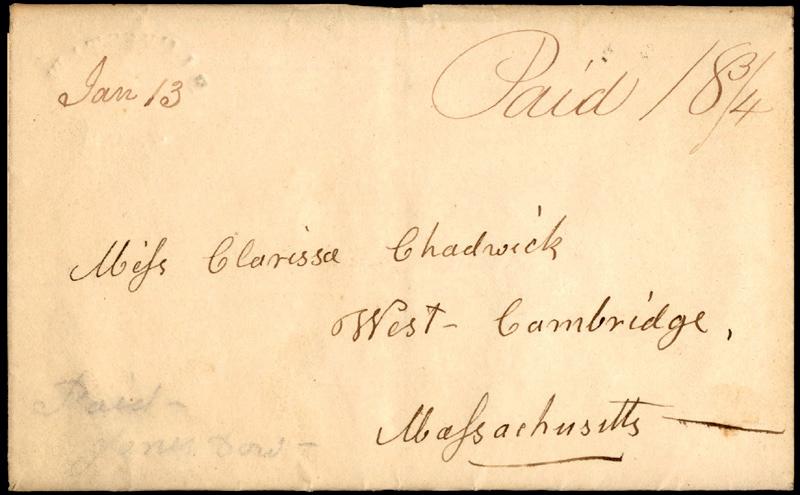 Jan 13
Paid 18 3/4
Miſs Clarissa Chadwick
West - Cambridge,
Maſsachusetts
Paid -